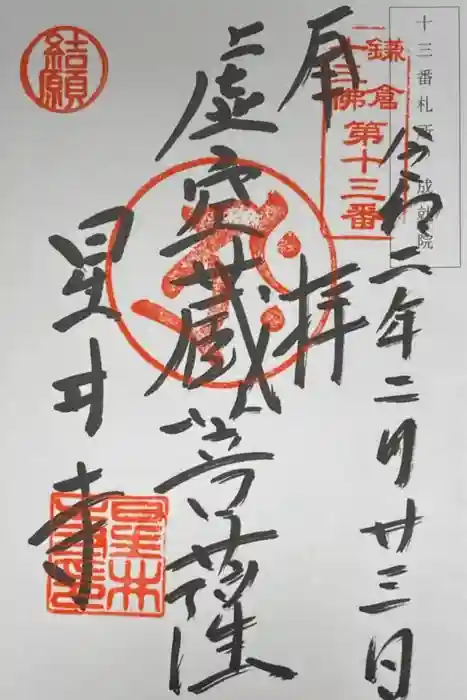 十三番札所 成就院
令和二年二月廿三日
鎌倉
十三佛
第十三番
奉
拝
虚空蔵菩薩
結願
星井寺